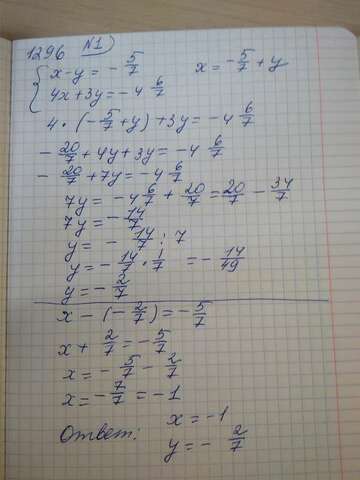 1296 №1)
{ x-y = - 5/7    x = -5/7 + y
4x+3y = -4 6/7
4 · (- 5/7 + y) + 3y = -4 6/7
- 20/7 + 4y + 3y = -4 6/7
- 20/7 + 7y = -4 6/7
7y = -4 6/7 + 20/7 = 20/7 - 34/7
7y = - 14/7
y = - 14/7 : 7
y = - 14/7 · 1/7 = - 14/49
y = - 2/7
x - (- 2/7) = - 5/7
x + 2/7 = - 5/7
x = - 5/7 - 2/7
x = - 7/7 = -1
Ответ: x = -1
y = - 2/7